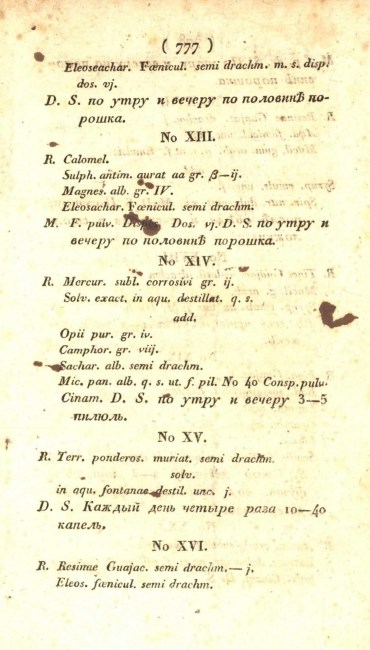 ( 777 )
Eleoseachar. Fœnicul. semi drachm. m. s. disp.
dos. vj.
D. S. по утру и вечеру по половинѣ по-
рошка.
No XIII.
R. Calomel.
Sulph. antim. aurat aa gr. β—ij.
Magnes. alb. gr. IV.
Eleosachar. Fœnicul. semi drachm.
M. F. pulv. Dos. vj. D. S. по утру и
вечеру по половинѣ порошка.
No XIV.
R. Mercur. subl. corrosivi gr. ij.
Solv. exact. in aqu. destillat. q. s.
add.
Opii pur. gr. iv.
Camphor. gr. viij.
Sachar. alb. semi drachm.
Mic. pan. alb. q. s. ut. f. pil. No 40 Consp. pulv.
Cinam. D. S. по утру и вечеру 3—5
пилюль.
No XV.
R. Terr. ponderos. muriat. semi drachm.
solv.
in aqu. fontanae destil. unc. j.
D. S. Каждый день четыре раза 10—40
капель.
No XVI.
R. Resinae Guajac. semi drachm.— j.
Eleos. fœnicul. semi drachm.